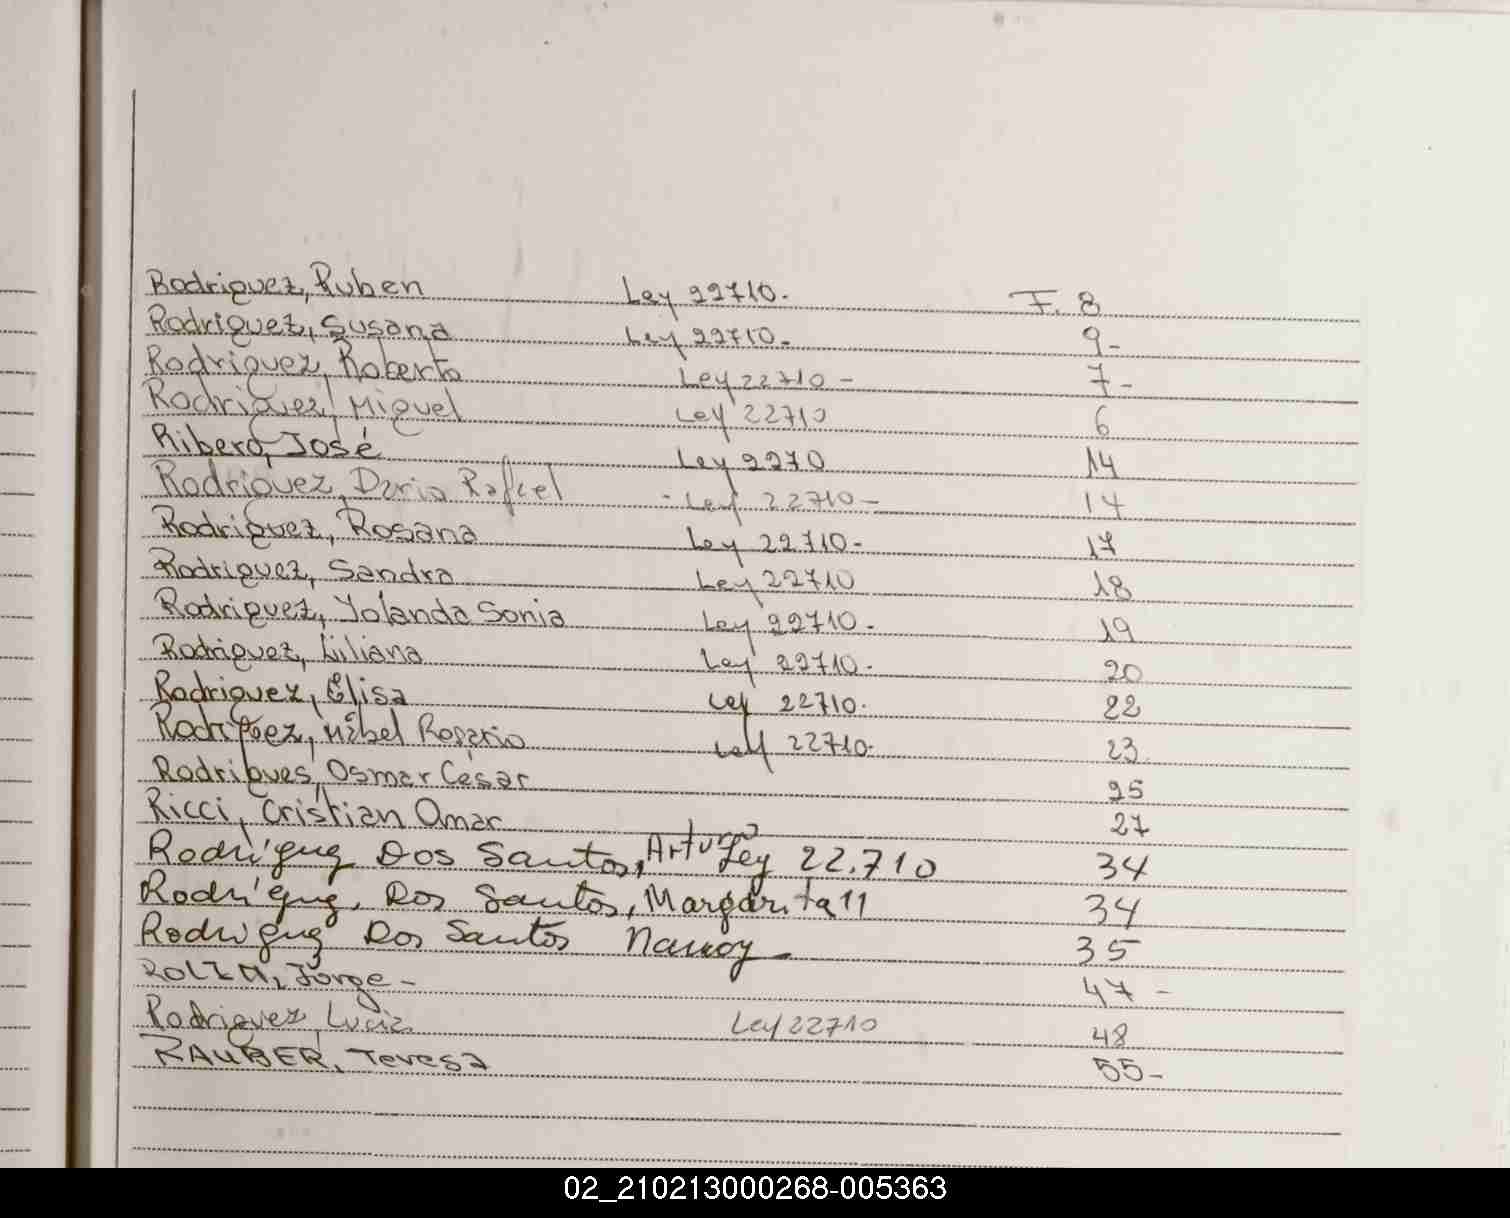 Rodriguez, Ruben Ley 22710. F. 8
Rodriguez, Susana Ley 22710- 9-
Rodriguez, Roberto Ley 22710- 7-
Rodriguez, Miguel Ley 22710 6
Ribero, José Ley 2270 14
Rodriguez, Dario Rafael Ley 22710- 14
Rodriguez, Rosana Ley 22710- 17
Rodriguez, Sandra Ley 22710 18
Rodriguez, Yolanda Sonia Ley 22710. 19
Rodriguez, Liliana Ley 22710. 20
Rodriguez, Elisa Ley 22710. 22
Rodriguez, Mabel Rosario Ley 22710. 23
Rodrigues, Osmar César 25
Ricci, Cristian Omar 27
Rodríguez Dos Santos, Arturo Ley 22.710 34
Rodríguez, Dos Santos, Margarita 11 34
Rodriguez Dos Santos 35
ROLIM, Jorge- 47-
Rodriguez, Lucia Ley 22710 48
RAUBER, Teresa 55-
02_210213000268-005363